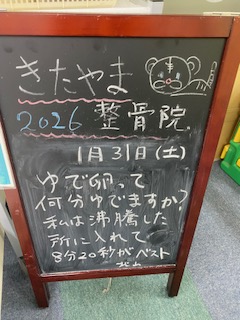 きたやま
2026 整骨院
1月31日(土)
ゆで卵って
何分ゆでますか?
私は沸騰した
所に入れて
8分20秒がベスト